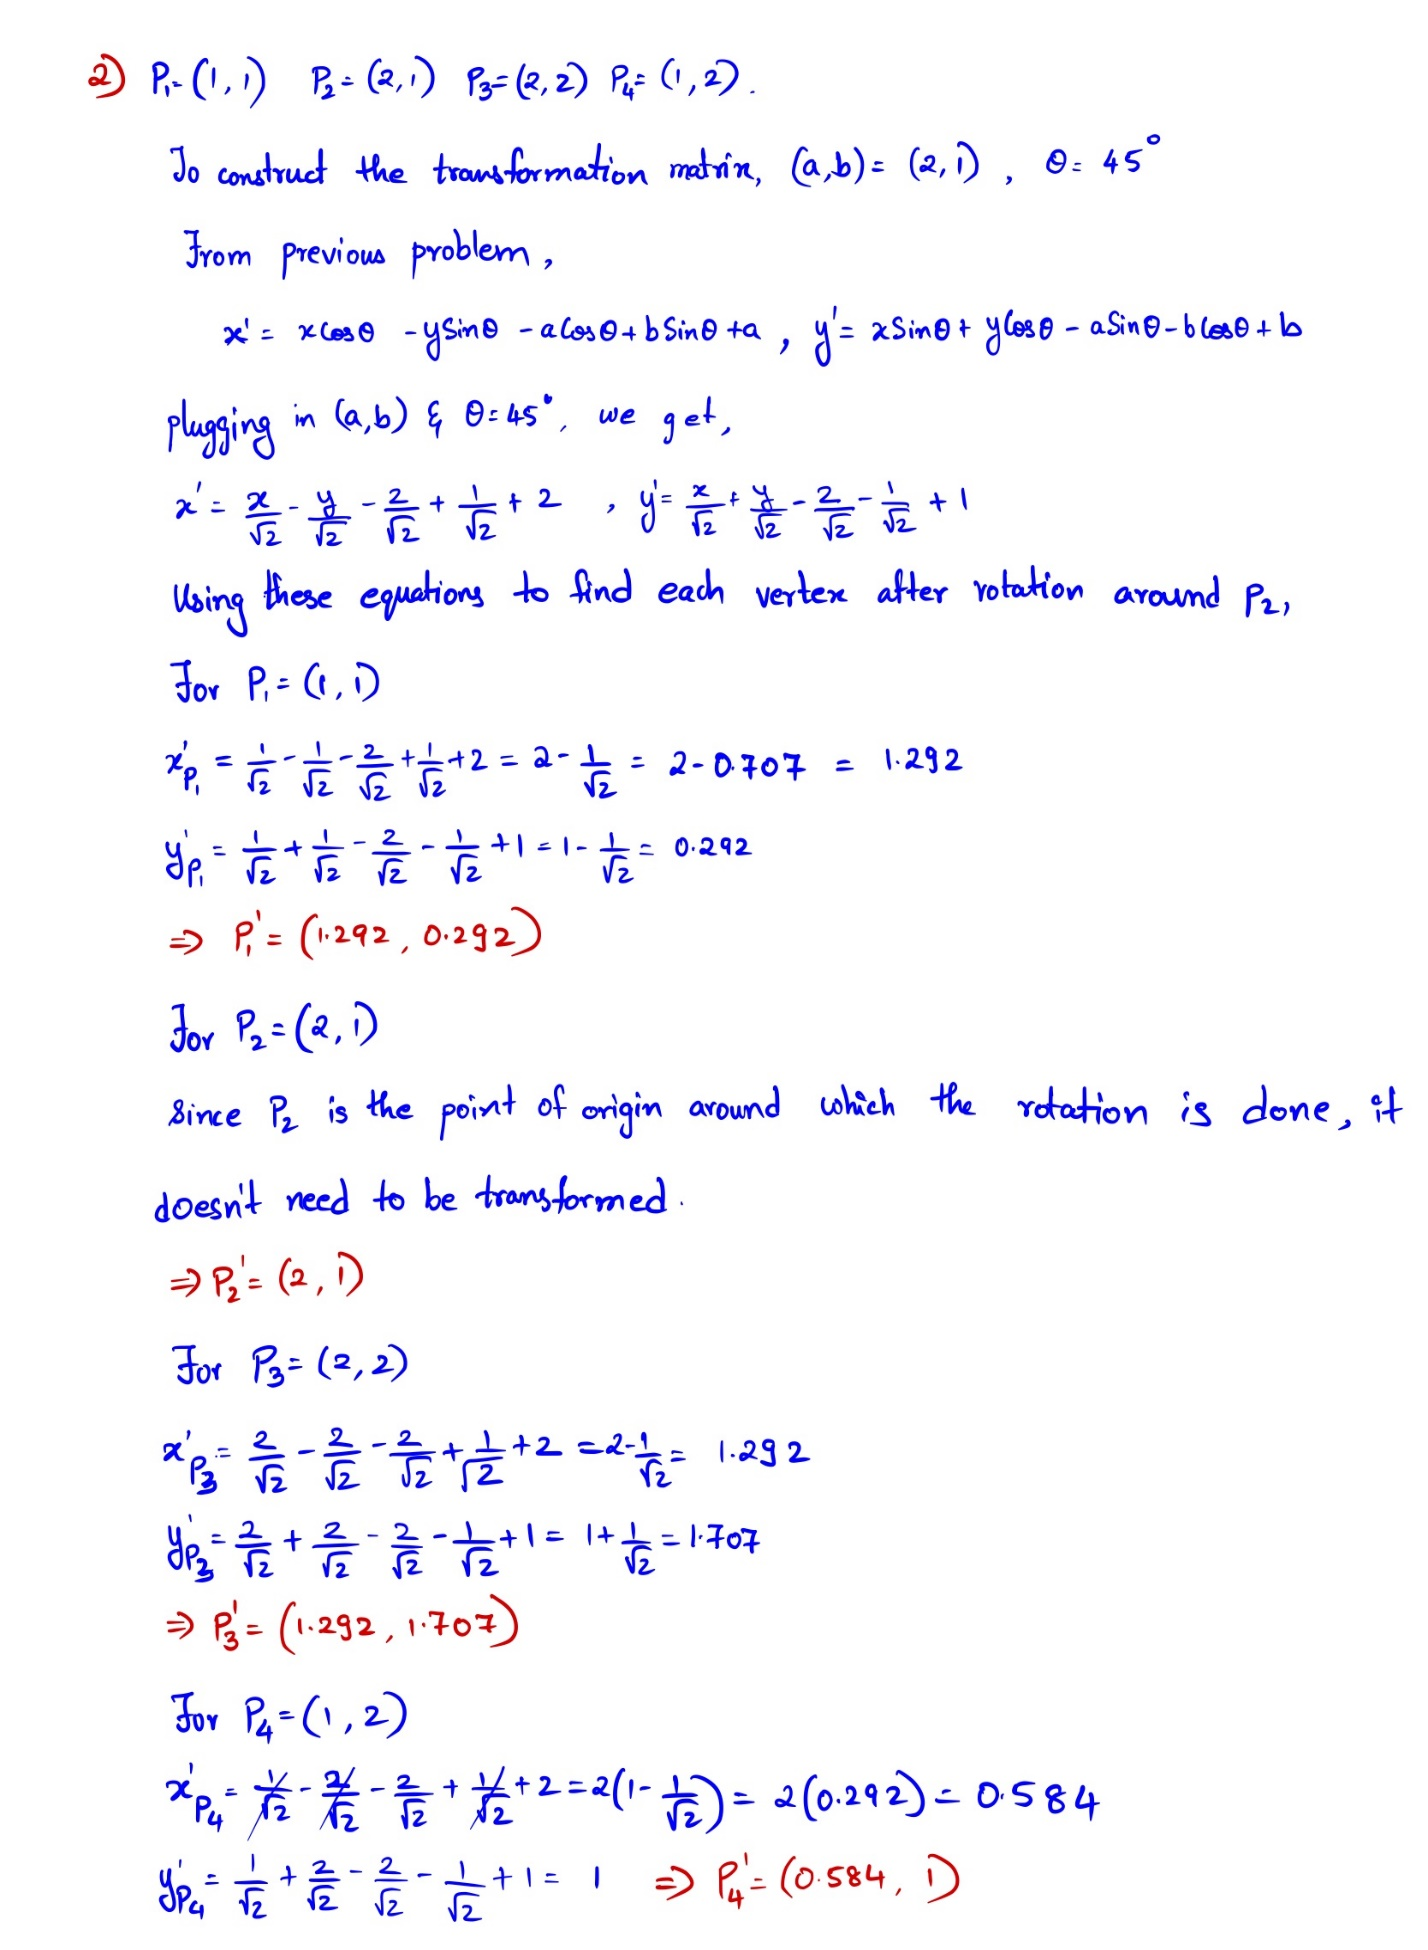 2) P₁= (1,1) P₂= (2,1) P₃= (2,2) P₄= (1,2).
To construct the transformation matrix, (a,b)= (2,1), θ= 45°
From previous problem,
x' = xCosθ - ySinθ - aCosθ + bSinθ + a, y' = xSinθ + yCosθ - aSinθ - bCosθ + b
plugging in (a,b) & θ=45°, we get,
x' = x/√2 - y/√2 - 2/√2 + 1/√2 + 2, y' = x/√2 + y/√2 - 2/√2 - 1/√2 + 1
Using these equations to find each vertex after rotation around P₂,
For P₁ = (1,1)
x'P₁ = 1/√2 - 1/√2 - 2/√2 + 1/√2 + 2 = 2 - 1/√2 = 2 - 0.707 = 1.292
y'P₁ = 1/√2 + 1/√2 - 2/√2 - 1/√2 + 1 = 1 - 1/√2 = 0.292
⇒ P₁' = (1.292, 0.292)
For P₂ = (2,1)
Since P₂ is the point of origin around which the rotation is done, it
doesn't need to be transformed.
⇒ P₂' = (2, 1)
For P₃ = (2,2)
x'P₃ = 2/√2 - 2/√2 - 2/√2 + 1/√2 + 2 = 2 - 1/√2 = 1.292
y'P₃ = 2/√2 + 2/√2 - 2/√2 - 1/√2 + 1 = 1 + 1/√2 = 1.707
⇒ P₃' = (1.292, 1.707)
For P₄ = (1,2)
x'P₄ = 1/√2 - 2/√2 - 2/√2 + 1/√2 + 2 = 2(1 - 1/√2) = 2(0.292) = 0.584
y'P₄ = 1/√2 + 2/√2 - 2/√2 - 1/√2 + 1 = 1 ⇒ P₄' = (0.584, 1)